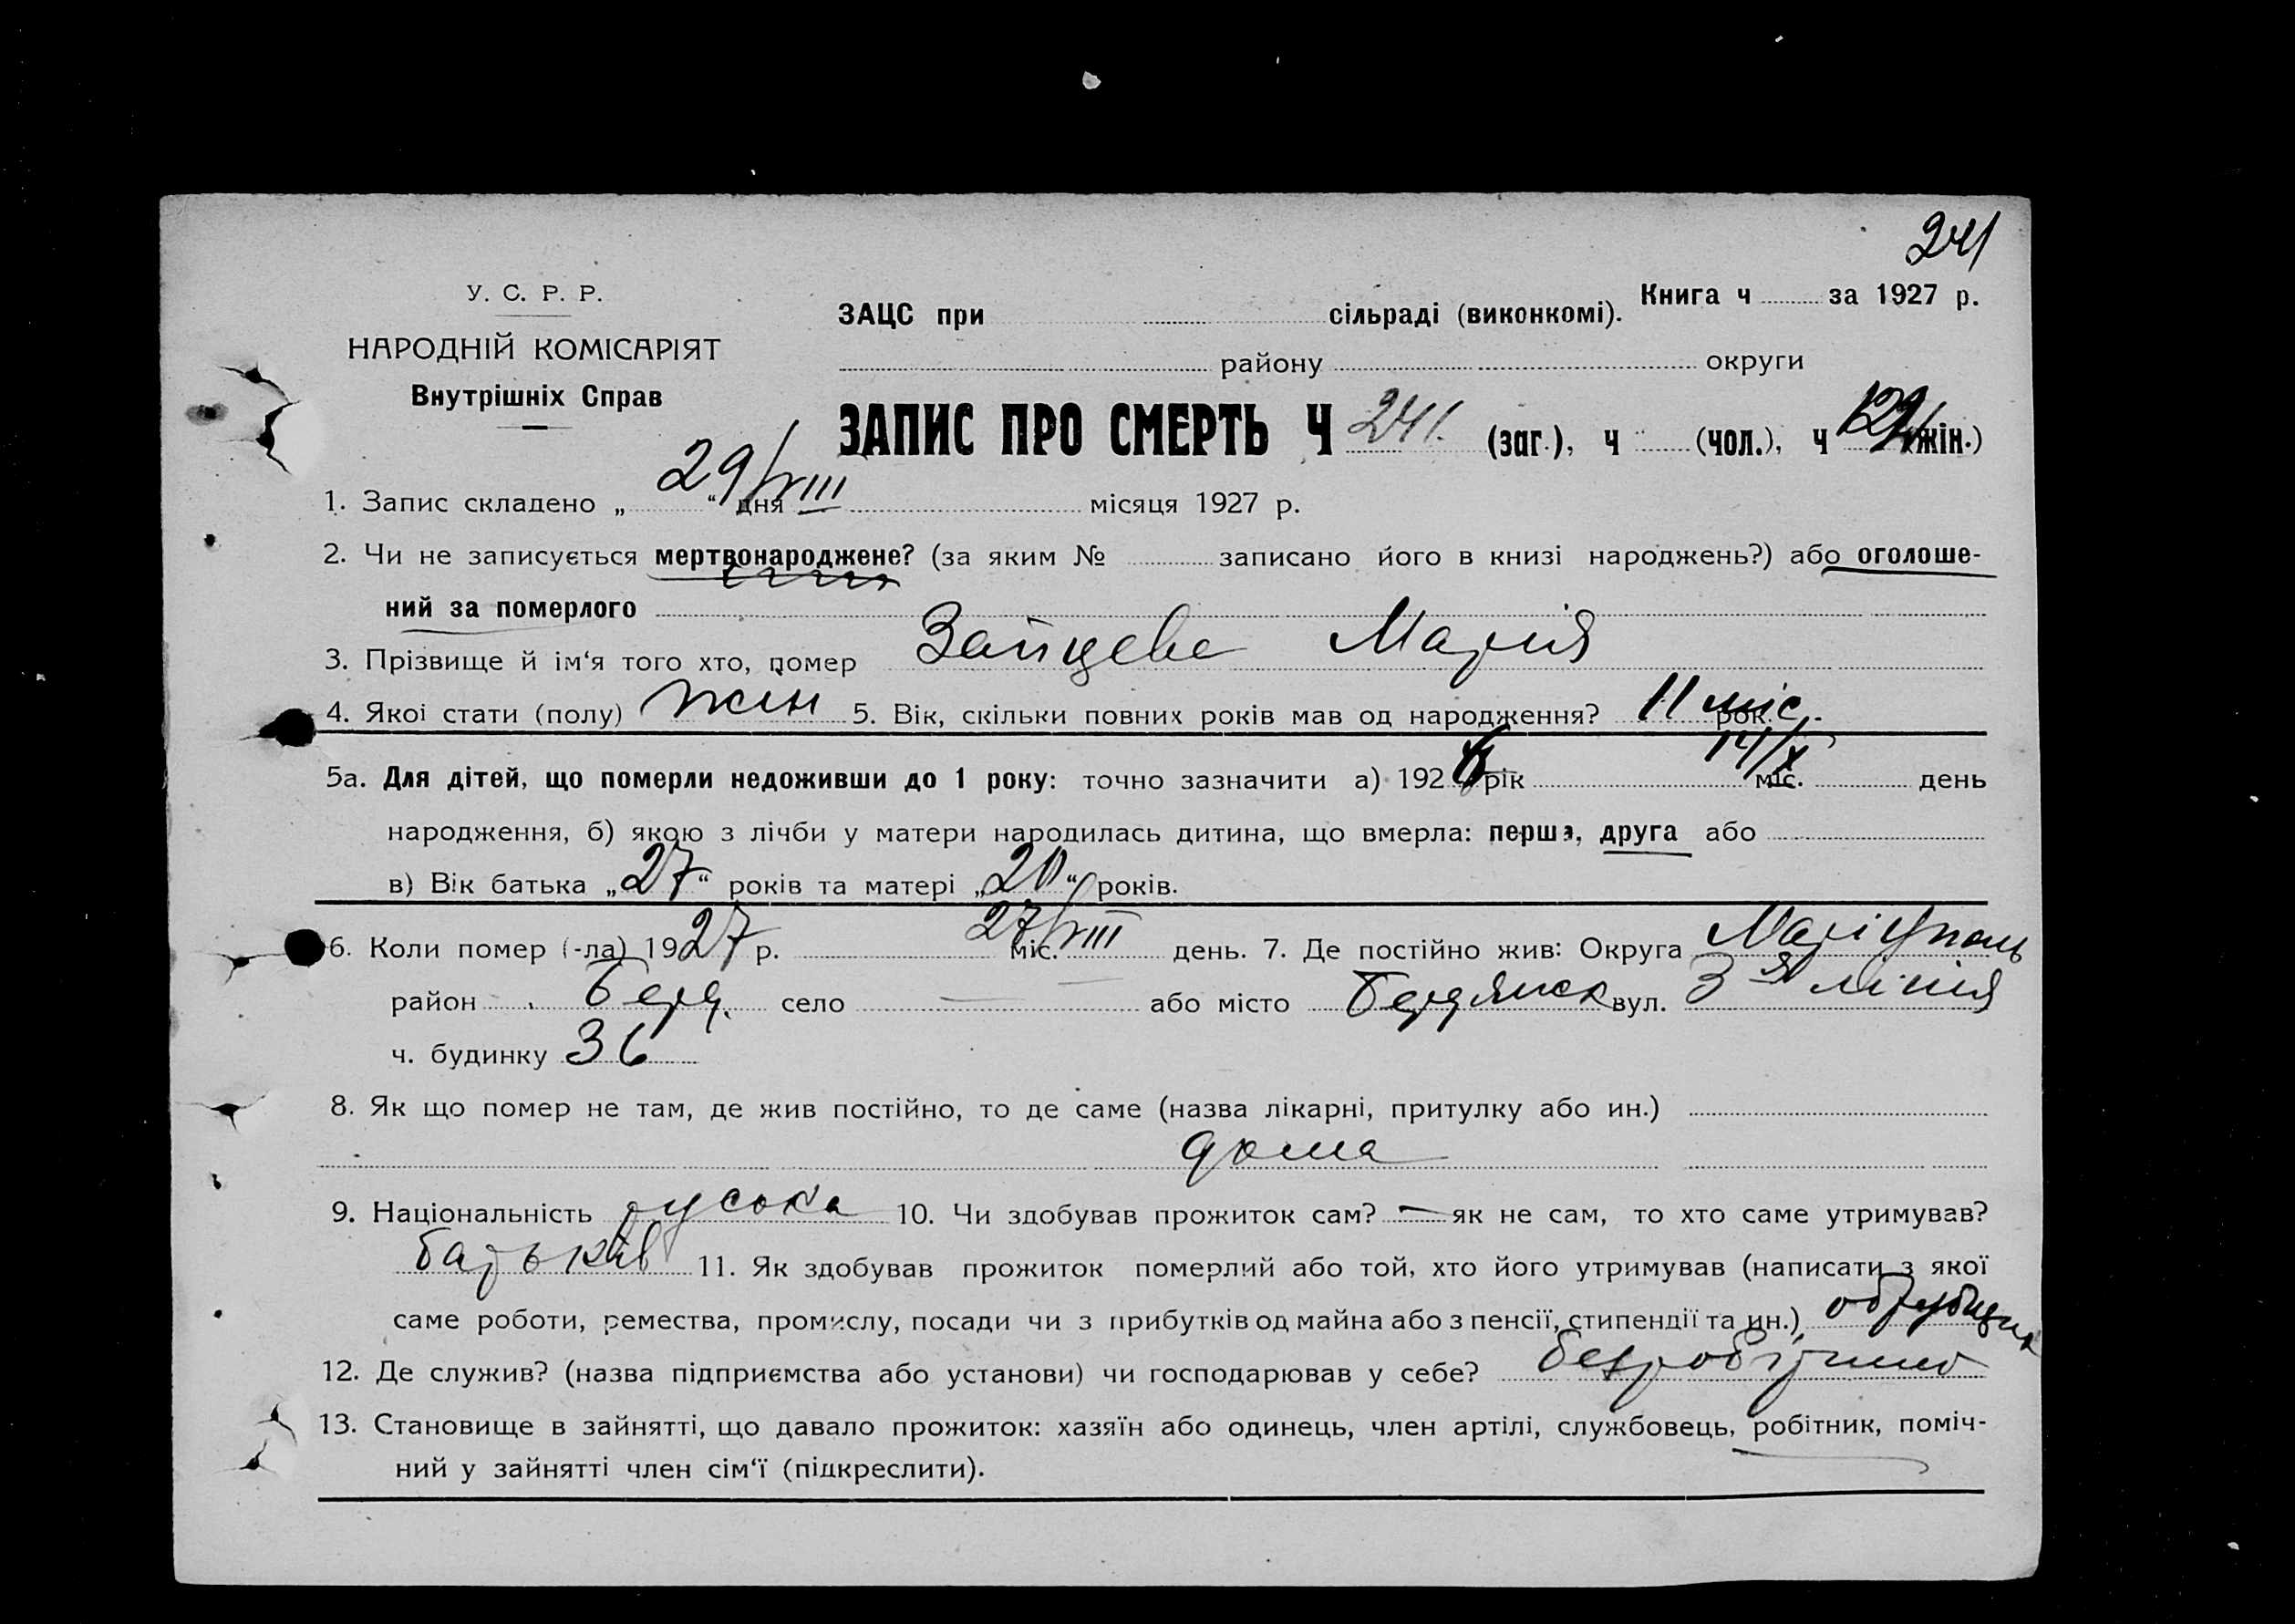 241
У. С. Р. Р.
НАРОДНІЙ КОМІСАРІЯТ
Внутрішніх Справ
ЗАЦС при сільраді (виконкомі). Книга ч за 1927 р.
району округи
ЗАПИС ПРО СМЕРТЬ Ч 241. (заг.), ч (чол.), ч (жін.)
1. Запис складено „ 29/VIII “ дня місяця 1927 р.
2. Чи не записується мертвонароджене? (за яким № записано його в книзі народжень?) або оголоше-
ний за померлого
3. Прізвище й ім‘я того хто, помер Зайцева Марія
4. Якої стати (полу) жін 5. Вік, скільки повних років мав од народження? 11 міс. рок.
5а. Для дітей, що померли недоживши до 1 року: точно зазначити а) 1926 рік 14/X міс. день
народження, б) якою з лічби у матери народилась дитина, що вмерла: перша, друга або
в) Вік батька „27“ років та матері „20“ років.
6. Коли помер (-ла) 1927 р. 27/VIII міс. день. 7. Де постійно жив: Округа Маріуполь
район Берд. село — або місто Бердянськ вул. 3я лінія
ч. будинку 36
8. Як що помер не там, де жив постійно, то де саме (назва лікарні, притулку або ин.)
дома
9. Національність руська 10. Чи здобував прожиток сам? — як не сам, то хто саме утримував?
батьків 11. Як здобував прожиток померлий або той, хто його утримував (написати з якої
саме роботи, ремества, промислу, посади чи з прибутків од майна або з пенсії, стипендії та ин.)
12. Де служив? (назва підприємства або установи) чи господарював у себе?
13. Становище в зайнятті, що давало прожиток: хазяїн або одинець, член артілі, службовець, робітник, поміч-
ний у зайнятті член сім‘ї (підкреслити).